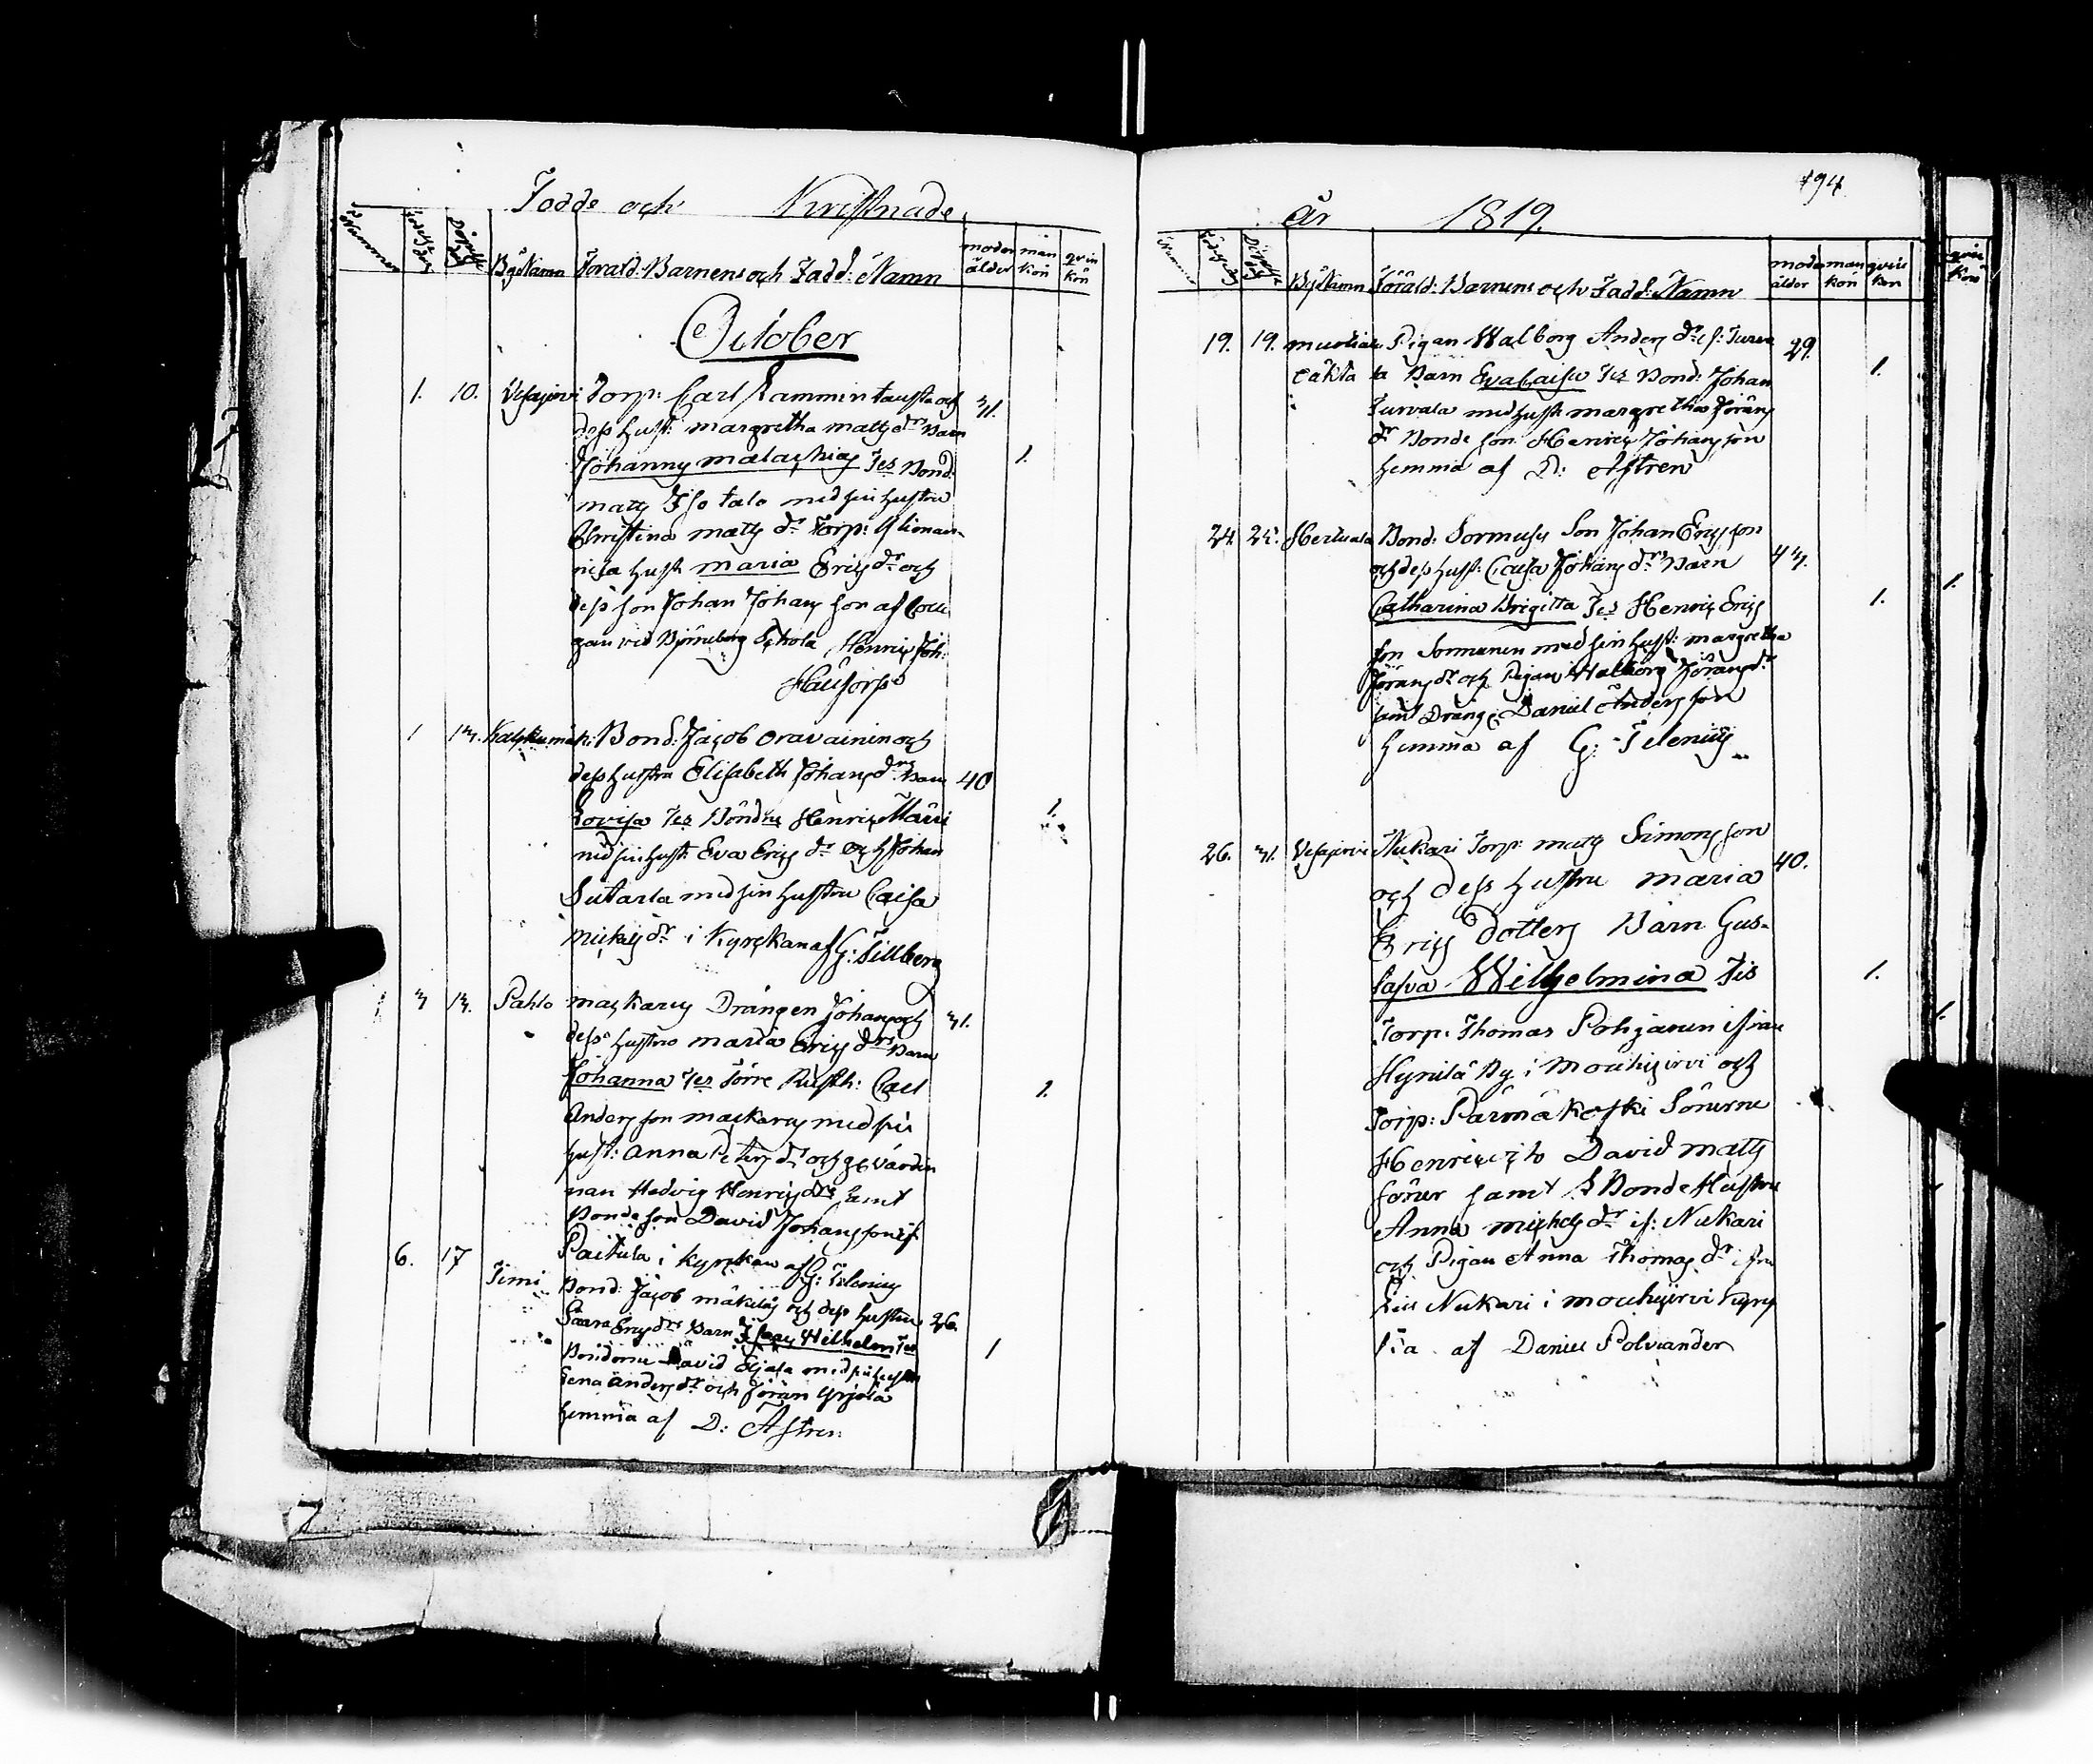 Födde och Kristnade
Nummer
Födelse dag
Döpelse dag
Bÿs Namn Föräld: Barnens och Fadd: Namn
moder ålder
man kön
qvin kön
October
1. 10. Vesajervi Torp: Carl Lammintausta och 31.
dess hust: margretha matts dr Barn
Johannes malachias Tes Bond: 1.
matts Iso talo med sin hustru
Christina matts dr Torp:
hust maria Erics dr och
dess son Johan Johans son af Colle
gan vid Björneborg Schola Henric Joh:
1 13. Bond: Jacob oravainin och
dess hustru Elisabeth Johans drs Barn 40
Lovisa Tes Bönder Henric Märri 1.
med sin hust: Eva Erics dr och Johan
Sutarla med sin hustru Caisa
mickels dr i Kyrckan af G: Tillberg
3 13. Pahlo mackarus Drängen Johan och 31.
dess hustru maria Erics drs Barn
Johanna Tes Förre Rusth: Carl 1.
Anders son mackarus med sin
hust: Anna Peters dr och gl värdin
nan Hedvig Henrics dr samt
Bonde son David Johans son if
Paitula i kyrckan af G: Telenius
6. 17 Timi Bond: Jacob mäkilä och dess hustru 26.
Saara Erics drs Barn Isaac Wilhelm Tes
Bönderne David Eljala med sin hustru 1
Lena Anders dr och Jöran Yrjölä
hemma af D: Astren
194
År 1819.
Nummer
Födelse dag
Döpelse dag
Bÿs Namn Föräld: Barnens och Fadd: Namn
moder ålder
man kön
qvin kön
qvin kön
19. 19. muolian Pigan Walborg Anders dr if: Turva 29.
la Barn Eva Caisa Tes Bond: Johan 1.
Turvala med hust margretha Jörans
dr Bonde son Henric Johans son
hemma af D: Astren
24. 25. Herttuala Bond: Sormuses Son Johan Erics son
och dess hust: Caisa Johans drs Barn 43.
Catharina Brigitta Tes Henric Erics 1. 1.
son Sormunen med sin hust: margretha
Jörans dr och Pigan Walborg Jörans dr
samt Dräng: Daniel Anders son
hemma af G: Telenius
26. 31. Vesajervi Nukari Torp: matts Simons son
och dess hustru maria 40.
Erics Dotters Barn Gus-
tafva Wilhelmina Tes 1.
Torp: Thomas Pohjanen ifrån 1.
Hynilä By i Mouhijervi och
Torp: Pärmäkoski Sönerne
Henric och David matts
söner samt Bonde Hustru
Anna michels dr if: Nukari
och Pigan Anna Thomas dr ifrån
Nukari i mouhijervi kyrck
af Daniel Polviander